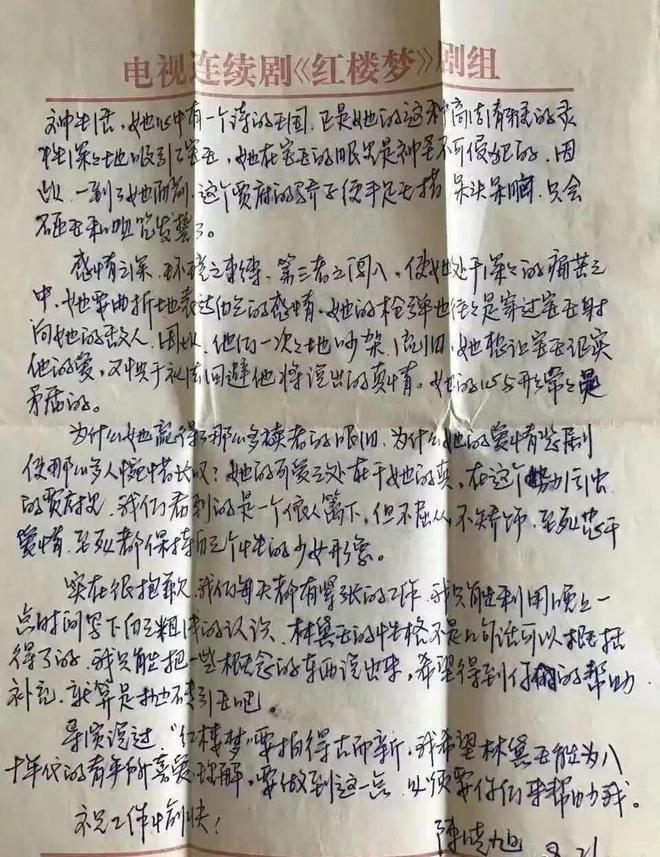 电视连续剧《红楼梦》剧组
神生活，她心中有一个诗的王国，正是她的这种高洁清雅的灵
性深深地吸引了宝玉，她在宝玉的眼里是神圣不可侵犯的，因
此，一到了她面前，这个贾府的骄子便手足无措，呆头呆脑，只会
发誓了。
感情之深，环境之束缚，第三者之闯入，使她处于深深的痛苦之
中，她要曲折地表达自己的感情，她的枪弹也往往是穿过宝玉射
向她的敌人，因此，他们一次次地吵架，流泪，她想让宝玉证实
他的爱，又惧于礼法回避他将说出的真情。她的心与形常常是
矛盾的。
为什么她赢得了那么多读者的眼泪，为什么她的爱情悲剧
使那么多人惋惜长叹？她的可爱之处在于她的真，在这个
的贾府里，我们看到的是一个依人篱下，但不屈从，不矫饰，至死忠于
爱情，至死都保持自己个性的少女形象。
实在很抱歉，我们每天都有紧张的工作，我只能利用晚上一
点时间写下自己粗浅的认识，林黛玉的性格不是几句话可以概括
得了的，我只能把一些概念的东西说出来，希望得到你们的帮助
补充，就算是抛砖引玉吧。
导演说过“红楼梦”要拍得古而新，我希望林黛玉能为八
十年代的青年所喜爱理解，要做到这一点，必须要你们来帮助我。
祝工作愉快！
陈晓旭
8.21